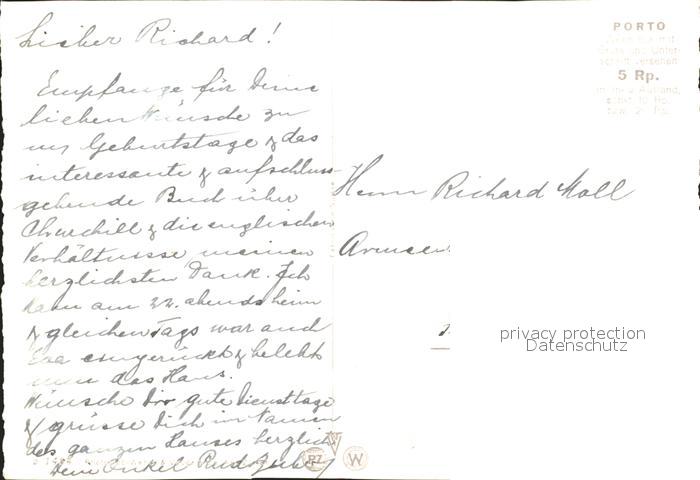 Lieber Richard!
Empfange für Deine
lieben Wünsche zu
m. Geburtstage & das
interessante & aufschluss-
gebende Buch über
Churchill & die englischen
Verhältnisse meinen
herzlichsten Dank. Ich
kam am 22. abends heim
& gleichen Tags war auch
eingerückt & belebt
nun das Haus.
Wünsche Dir gute Diensttage
& grüsse Dich im Namen
des ganzen Hauses herzlich
Dein Onkel
PORTO
5 Rp.
Herrn Richard Moll
privacy protection
Datenschutz
RZ
W